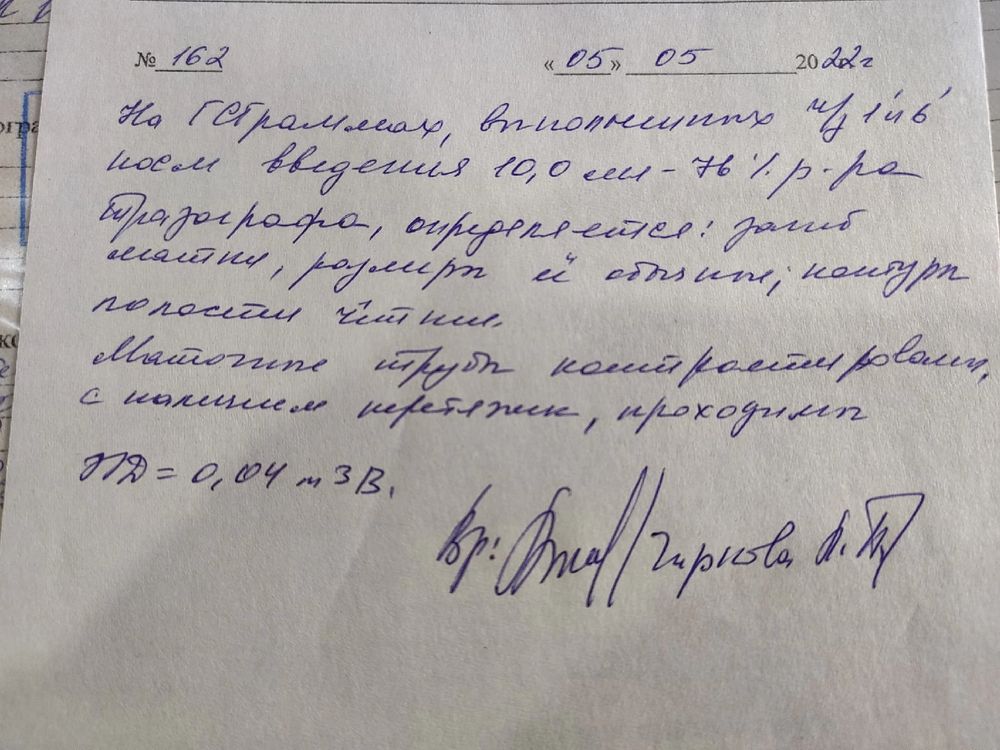 № 162 « 05 » 05 2022г
На ГСГраммах, выполненных ч/з 1' и 6'
после введения 10,0 мл - 76% р-ра
Тразографа, определяется: загиб
матки, размеры её обычные, контуры
полости чёткие.
Маточные трубы контрастированы,
с наличием перетяжек, проходимы
ЛД = 0,04 мЗв.
Вр: Чиркова